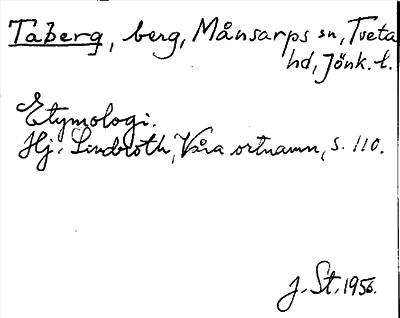 Taberg, berg, Månsarps sn, Tveta
hd, Jönk. l.
Etymologi.
Hj. Lindroth, Våra ortnamn, s. 110.
J. St. 1956.